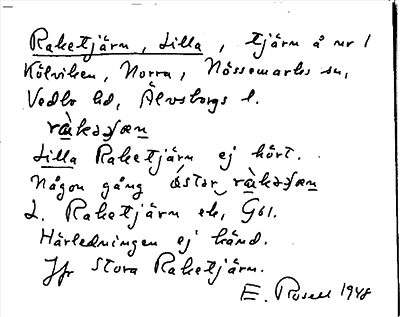 Raketjärn, Lilla, tjärn å nr 1
Kölviken, Norra, Nössemarks sn,
Vedbo hd, Älvsborgs l.
Lilla Raketjärn ej hört.
Någon gång öster
L. Raketjärn ek, G61.
Härledningen ej känd.
Jfr Stora Raketjärn.
E. Rosell 1948